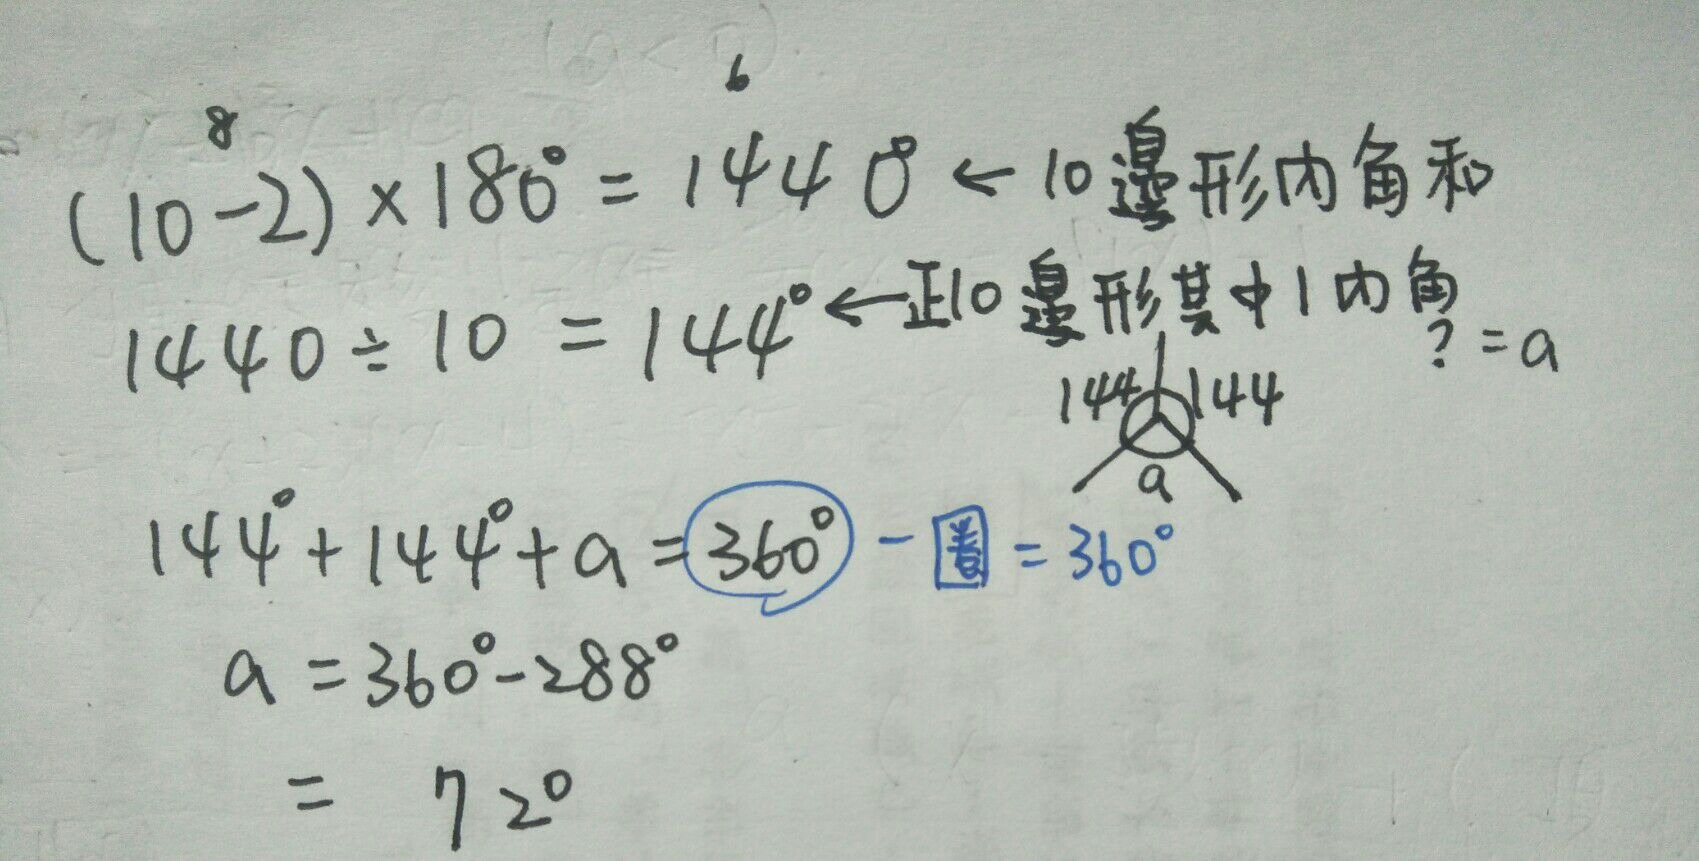 8
6
(10-2)×180°=1440°←10邊形內角和
1440÷10=144°←正10邊形其中1內角
?=a
144 144
a
144°+144°+a=360° -圈=360°
a=360°-288°
= 72°